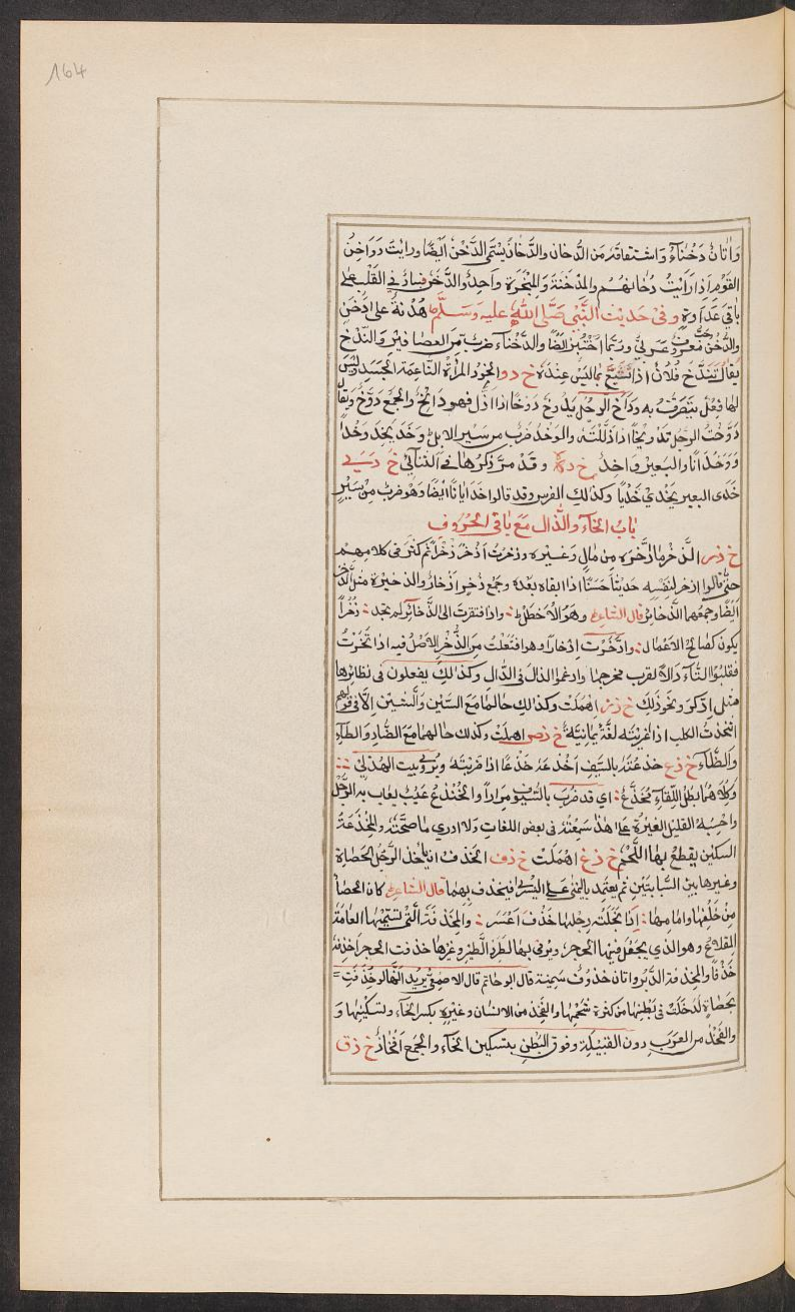 164
وَأتانٌ دَخْناءُ وَاشتقاقه مَن الدُّخان والدَّخانُ يُسَمّى الدَّخْنَ ايضًا ورايتَ دَوَاخِنَ
القَوْمِ اذا رَأيْتَ دُخانهُم والمدْخَنة وَالمِجْمَرة واحِدٌ والدَّخَنُ فسادٌ في القلب على
باقي عَدَاوةٍ وفي حَديث النَّبيّ صَلّى اللّهُ عليه وَسَلَّم هُدْنةٌ على دَخَنٍ
والدُّخْنُ حَبٌّ معروفٌ عَربيٌّ وربّما اخْتُبز ايضًا والدَّخْناءُ ضربٌ مَن العصافير والنّدْخ
يُقال تَندَّخ فلانٌ اذا تَشبَّع بما ليسَ عِندَهُ خ د و الخَوْدُ المرأة النّاعِمَة الجَسَد وليسَ
لهَا فِعْل يَتصَرّف به ودَاخ الرجُل يدُوخ دَوخًا اذا ذلّ فهو دَائخٌ والجمع دُوّخٌ ويقال
دَوّختُ الرجُل تَدْويخًا اذا ذَلّلتَه والوَخْد ضرب من سَير الابل وَخَد يَخِد وَخْدًا
وَوَخَدَانًا والبَعير وَاخِدٌ خ د ه‍ وقَدْ مرَّ ذكرُها في الثنائي خ د ي
خَدَى البعير يَخْدي خَدْيًا وكذلك الفرس وقد قالوا خَدَيانًا ايضًا وَهوَ ضربٌ مِن سَيْرٍ
بابُ الخاءِ والذّال مَعَ باقي الحُرُوف
خ ذ ر الذّخر ما ذَخَرَه مِن مالٍ وَغَيره وذخرتُ أذخَر ذُخرًا ثم كثر في كلامهم
حتّى قالوا اذخر لنفسِه حَديثًا حَسَنًا اذا ابقاه بعدهُ وجمع ذُخرٍ اذخارٌ والذخيرة مثل الذخر
ايضًا وجَمعُهما الذّخائر قال الشاعر وَهوَ الأخطل واذا افتقرتَ الى الذّخائر لم تجد ذُخْرًا
يكونُ كصَالِح الاعمال وادّخرت ادّخارًا وهو افتعلت مِنَ الذُّخرِ الاصْلُ فيه اذتَخَرْتُ
فقلبُوا التّاء دَالاً لقرب مَخرجها وادغموا الذالَ في الدّال وكذلك يفعلون في نظائرها
مثل ادّكرَ ونحو ذلِكَ خ ذ ز اُهْمِلَتْ وكذلك حالها مَعَ السّين وَالشّين الّا في قولهم
اشخذتُ الكلب اذا اغريتَه لغَةٌ يمانِيَة خ ذ ص اهملت وكذلك حالهما مَعَ الضّادِ وَالطّاءِ
وَالظّاءِ خ ذ ع خذعتُه بالسّيفِ أخْذعَهُ خَذْعًا اذا ضربتَهُ ويروى بيت الهذلي
وكِلاهُما بَطل اللّقاء مُخَذَّعٌ اي قد ضُرِبَ بالسُّيوف مِرَاراً والخُنذُع عَيْبٌ يُعاب به الرّجُل
واحْسِبهُ القليل الغيرَة على اهله سَمِعْتُه في بعض اللغات ولا ادري ما صحّتُه والمِخْذَعَةُ
السكّين يقطع بها اللّحْمُ خ ذ غ اهْمَلَتْ خ ذ ف الخَذْف ان ياخذ الرَّجُل الحَصَاة
وغيرها بين السّبابتَيْن ثم يعتمِد باليُمنى على اليُسْرى فيَخذف بهما قال الشاعر كانَّ الحصَا
مِن خَلْفِها وامامِها اذا نَجَلَتْه رِجْلها خَذْف أعْسَر والمِخْذفَةُ الّتي تُسَمّيْها العامّةُ
المِقلاع وهو الذي يُجْعَل فيها الحجر ويُرْمى بها لطرد الطَّير وغيرها خذفت الحجر اخذِفهُ
خَذْفًا والمِخذفة الدُّبر واتان خَذُوفٌ سَمِينة قال ابو حاتم قال الاصمعيّ يُريد انّها لو خُذِفَت
بحَصَاةٍ لدَخَلَتْ في بَطْنِهَا من كثرة شحمِها والفَخِذ منَ الانسان وغيره بكسر الخاءِ وتسكينِها وَ
والفَخْذُ من العَرَبِ دون القَبيْلَة وفوق البَطْنِ بتسكين الخاءِ والجمعُ أفْخاذٌ خ ذ ق